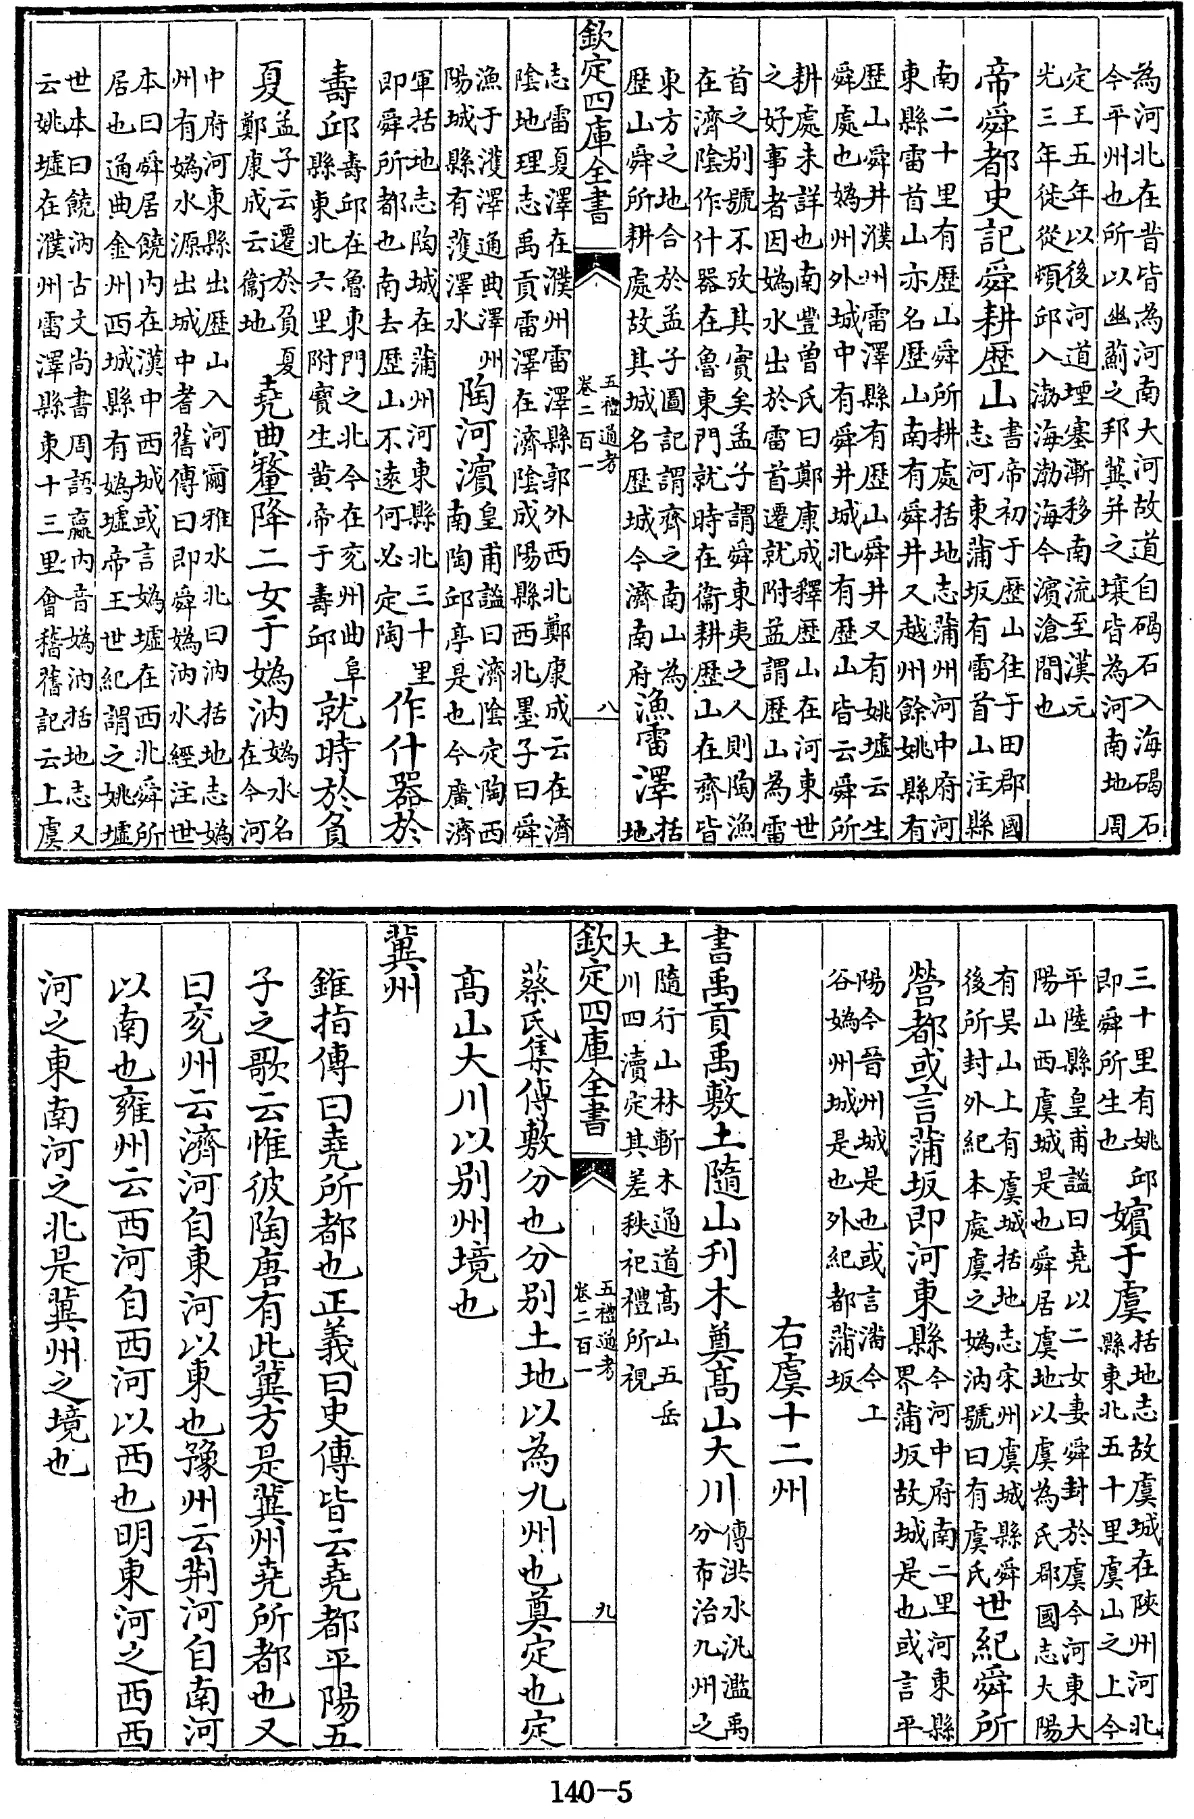 為河北在昔皆為河南大河故道自碣石入海碣石
今平州也所以幽薊之邦冀并之壤皆為河南地周
定王五年以後河道堙塞漸移南流至漢元
光三年徙從頓邱入渤海渤海今濱滄間也
帝舜都史記舜耕歷山書帝初于歷山往于田郡國
志河東蒲坂有雷首山注縣
南二十里有歷山舜所耕處括地志蒲州河中府河
東縣雷首山亦名歷山南有舜井又越州餘姚縣有
歷山舜井濮州雷澤縣有歷山舜井又有姚墟云生
舜處也媯州外城中有舜井城北有歷山皆云舜所
耕處未詳也南豐曾氏曰鄭康成釋歷山在河東世
之好事者因媯水出於雷首遷就附益謂歷山為雷
首之別號不攷其實矣孟子謂舜東夷之人則陶漁
在濟陰作什器在魯東門就時在衞耕歷山在齊皆
東方之地合於孟子圖記謂齊之南山為
歷山舜所耕處故其城名歷城今濟南府漁雷澤括
地
欽定四庫全書 五禮通考 卷二百一 八
志雷夏澤在濮州雷澤縣郭外西北鄭康成云在濟
陰地理志禹貢雷澤在濟陰成陽縣西北墨子曰舜
漁于濩澤通典澤州
陽城縣有濩澤水陶河濱皇甫謐曰濟陰定陶西
南陶邱亭是也今廣濟
軍括地志陶城在蒲州河東縣北三十里
即舜所都也南去歷山不遠何必定陶作什器於
壽邱壽邱在魯東門之北今在兖州曲阜
縣東北六里附寳生黄帝于壽邱就時於負
夏孟子云遷於負夏
鄭康成云衞地堯典釐降二女于媯汭媯水名
在今河
中府河東縣出歷山入河爾雅水北曰汭括地志媯
州有媯水源出城中耆舊傳曰即舜媯汭水經注世
本曰舜居饒内在漢中西城或言媯墟在西北舜所
居也通典金州西城縣有媯墟帝王世紀謂之姚墟
世本曰饒汭古文尚書周語嬴内音媯汭括地志又
云姚墟在濮州雷澤縣東十三里會稽舊記云上虞
三十里有姚邱
即舜所生也嬪于虞括地志故虞城在陜州河北
縣東北五十里虞山之上今
平陸縣皇甫謐曰堯以二女妻舜封於虞今河東大
陽山西虞城是也舜居虞地以虞為氏郡國志大陽
有吴山上有虞城括地志宋州虞城縣舜
後所封外紀本處虞之媯汭號曰有虞氏世紀舜所
營都或言蒲坂即河東縣今河中府南二里河東縣
界蒲坂故城是也或言平
陽今晉州城是也或言潘今上
谷媯州城是也外紀都蒲坂
右虞十二州
書禹貢禹敷土隨山刋木奠髙山大川傳洪水汎濫禹
分布治九州之
土隨行山林斬木通道髙山五岳
大川四瀆定其差秩祀禮所視
欽定四庫全書 五禮通考 卷二百一 九
蔡氏集傳敷分也分別土地以為九州也奠定也定
髙山大川以別州境也
冀州
錐指傳曰堯所都也正義曰史傳皆云堯都平陽五
子之歌云惟彼陶唐有此冀方是冀州堯所都也又
曰兖州云濟河自東河以東也豫州云荆河自南河
以南也雍州云西河自西河以西也明東河之西西
河之東南河之北是冀州之境也
140-5